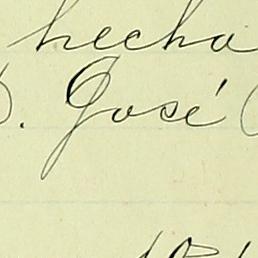 hecha
. José